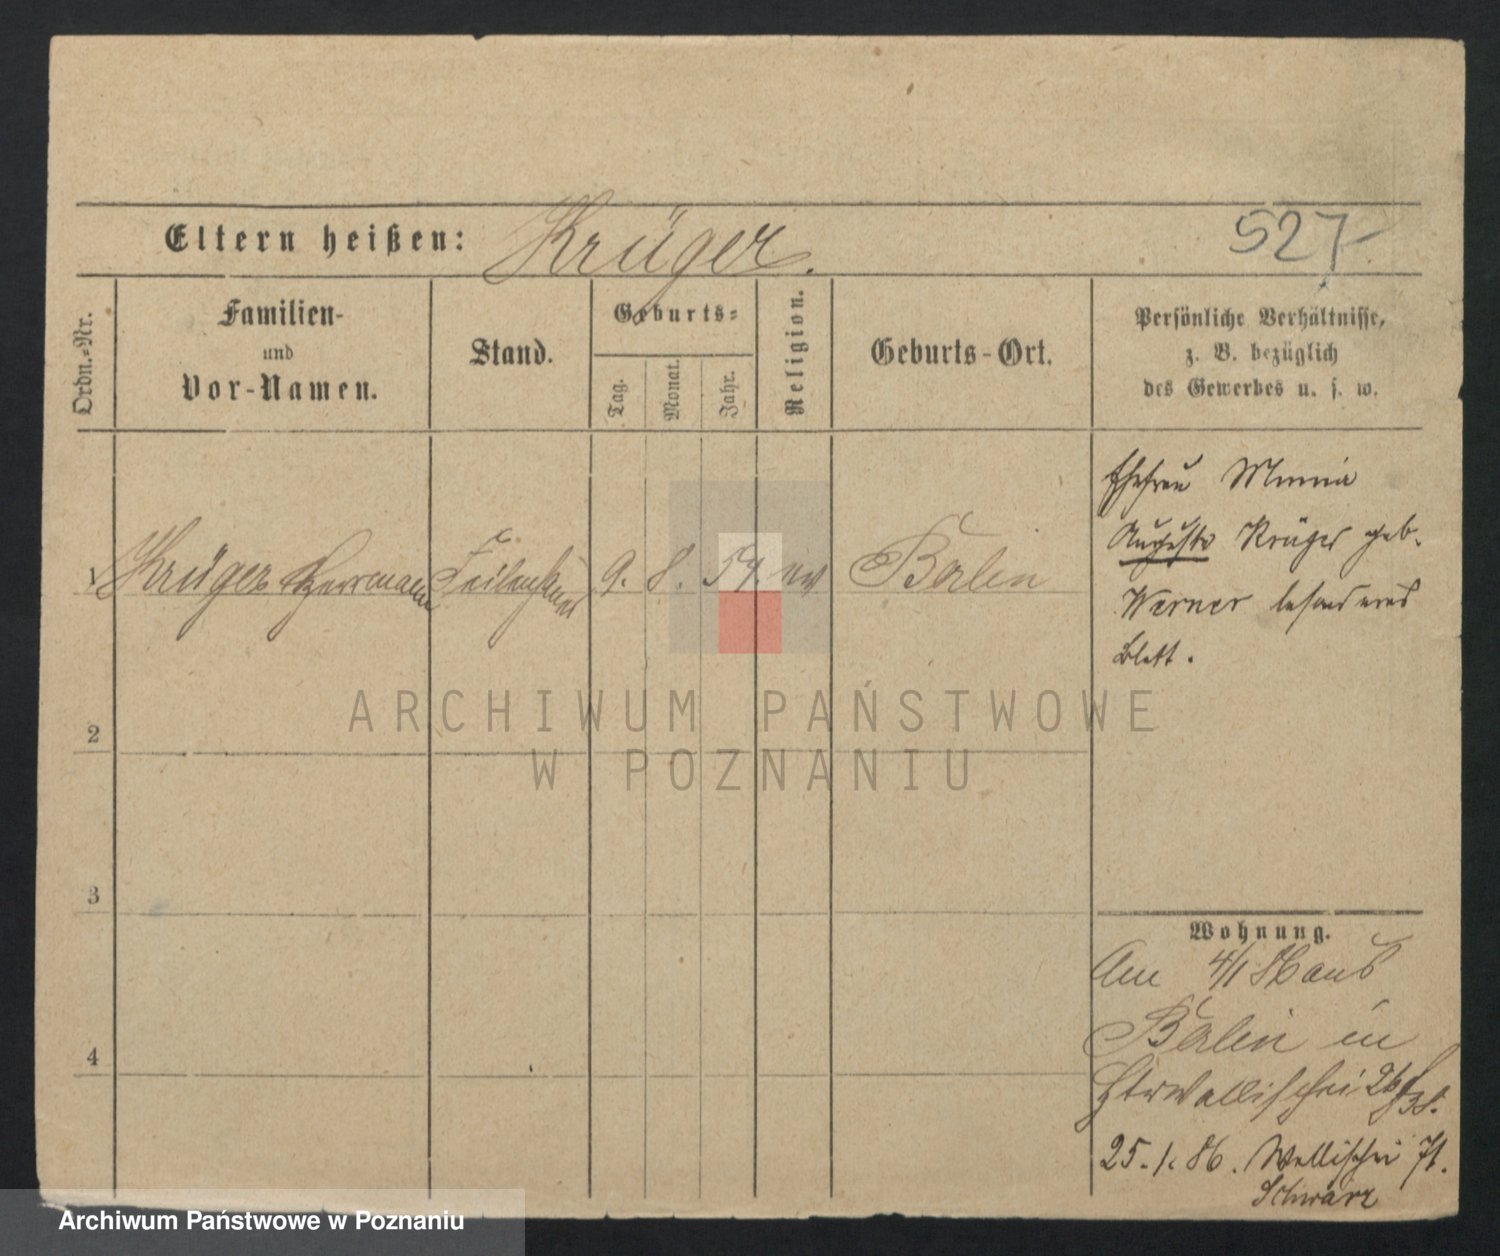 Eltern heißen: Krüger. 527
Ordn.-Nr.
Familien-
und
Vor-Namen.
Stand.
Geburts-
Tag.
Monat.
Jahr.
Religion.
Geburts-Ort.
Persönliche Verhältnisse,
z. B. bezüglich
des Gewerbes u. s. w.
1 Krüger Herrmann Feilenhauer 9. 8. 54. ev Berlin
Ehefrau Minna
Auguste Krüger geb.
Werner besonderes
Blatt.
2
3
4
Wohnung.
Am 4/1 86 aus
Berlin in
Wallischei
25. 1. 86. Wallischei 71.
Schwarz
ARCHIWUM PAŃSTWOWE
W POZNANIU
Archiwum Państwowe w Poznaniu